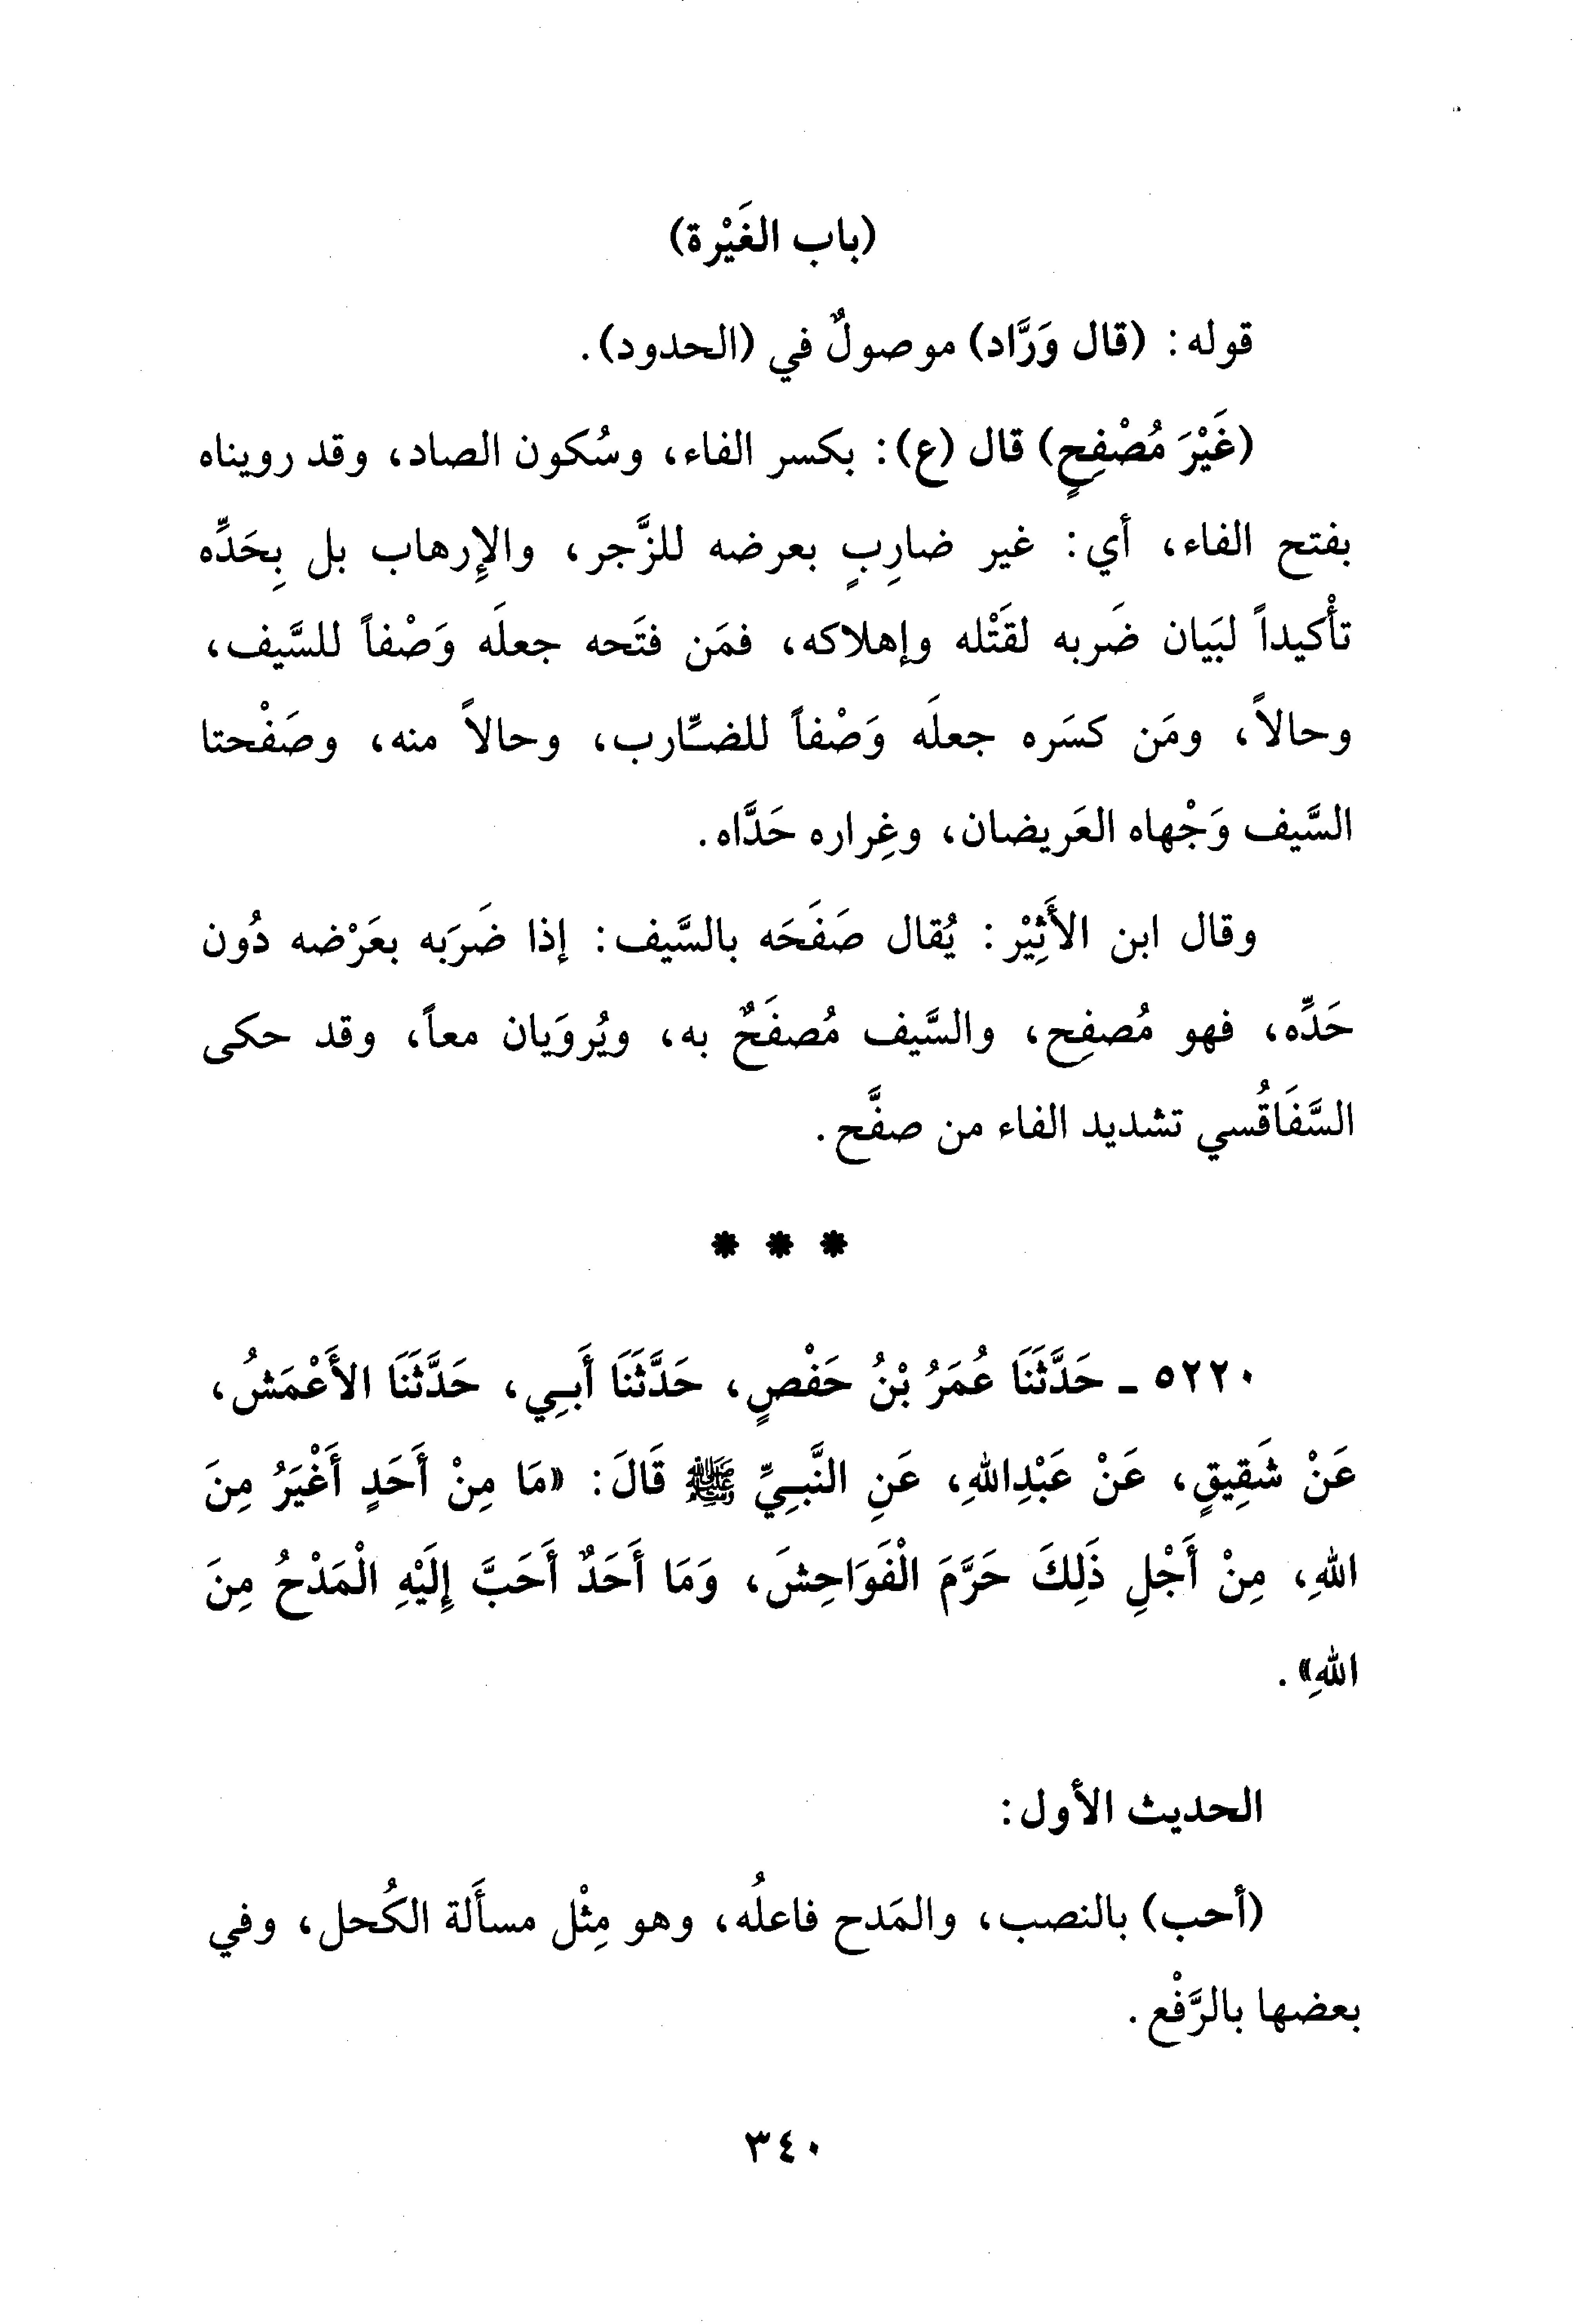 (باب الغَيْرة)
قوله: (قال وَرَّاد) موصولٌ في (الحدود).
(غَيْرَ مُصْفِحٍ) قال (ع): بكسر الفاء، وسُكون الصاد، وقد رويناه
بفتح الفاء، أي: غير ضارِبٍ بعرضه للزَّجر، والإِرهاب بل بِحَدِّه
تأْكيداً لبَيان ضَربه لقَتْله وإهلاكه، فمَن فتَحه جعلَه وَصْفاً للسَّيف،
وحالاً، ومَن كسَره جعلَه وَصْفاً للضـَّارب، وحالاً منه، وصَفْحتا
السَّيف وَجْهاه العَريضان، وغِراره حَدَّاه.
وقال ابن الأَثِيْر: يُقال صَفَحَه بالسَّيف: إذا ضَرَبه بعَرْضه دُون
حَدِّه، فهو مُصفِح، والسَّيف مُصفَحٌ به، ويُروَيان معاً، وقد حكى
السَّفَاقُسي تشديد الفاء من صفَّح.
* * *
٥٢٢٠ - حَدَّثَنَا عُمَرُ بْنُ حَفْصٍ، حَدَّثَنَا أَبِي، حَدَّثَنَا الأَعْمَشُ،
عَنْ شَقِيقٍ، عَنْ عَبْدِاللهِ، عَنِ النَّبِيِّ ﷺ قَالَ: «مَا مِنْ أَحَدٍ أَغْيَرُ مِنَ
اللهِ، مِنْ أَجْلِ ذَلِكَ حَرَّمَ الْفَوَاحِشَ، وَمَا أَحَدٌ أَحَبَّ إِلَيْهِ الْمَدْحُ مِنَ
اللهِ».
الحديث الأول:
(أحب) بالنصب، والمَدح فاعلُه، وهو مِثْل مسأَلة الكُحل، وفي
بعضها بالرَّفْع.
٣٤٠